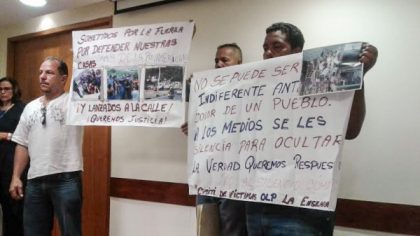 SOMETIDOS POR LA FUERZA
POR DEFENDER NUESTRAS
CASAS
¡Y LANZADOS A LA CALLE!
¡QUEREMOS JUSTICIA!
NO SE PUEDE SER
INDIFERENTE ANT
DOLOR DE UN PUEBLO.
A LOS MEDIOS SE LES
SILENCIA PARA OCULTAR
LA VERDAD QUEREMOS RESPUES
COMITÉ DE VÍCTIMAS OLP LA ENSENA